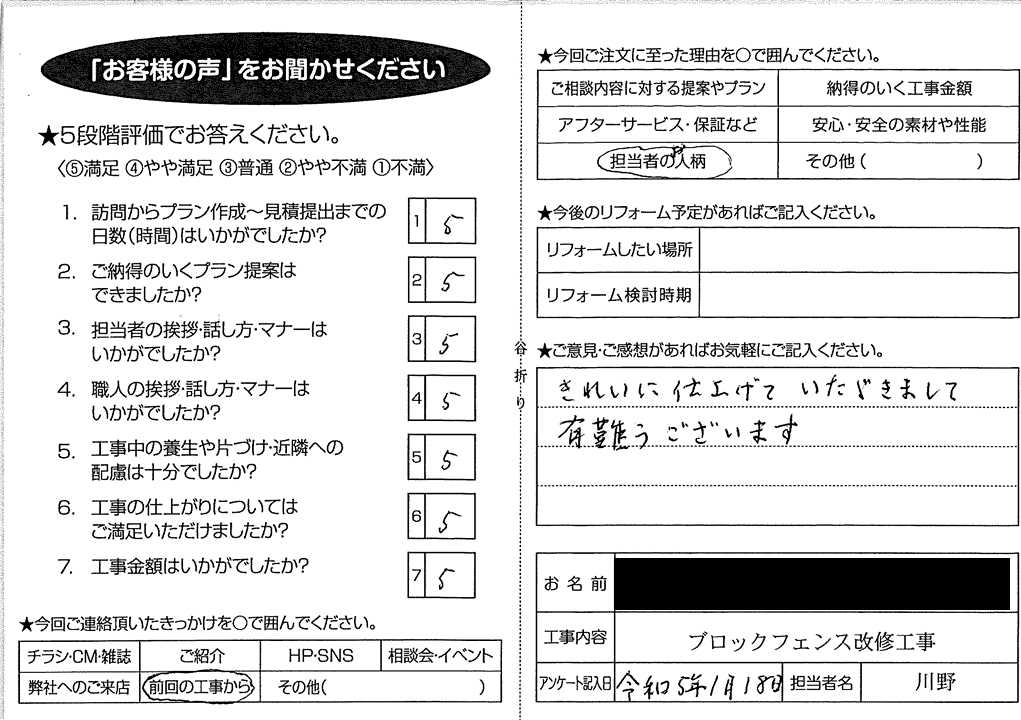 「お客様の声」をお聞かせください
★5段階評価でお答えください。
〈⑤満足 ④やや満足 ③普通 ②やや不満 ①不満〉
1. 訪問からプラン作成〜見積提出までの
日数(時間)はいかがでしたか?
1 5
2. ご納得のいくプラン提案は
できましたか?
2 5
3. 担当者の挨拶・話し方・マナーは
いかがでしたか?
3 5
4. 職人の挨拶・話し方・マナーは
いかがでしたか?
4 5
5. 工事中の養生や片づけ・近隣への
配慮は十分でしたか?
5 5
6. 工事の仕上がりについては
ご満足いただけましたか?
6 5
7. 工事金額はいかがでしたか?
7 5
★今回ご連絡頂いたきっかけを○で囲んでください。
チラシ・CM・雑誌 ご紹介 HP・SNS 相談会・イベント
弊社へのご来店 前回の工事から その他( )
谷折り
★今回ご注文に至った理由を○で囲んでください。
ご相談内容に対する提案やプラン 納得のいく工事金額
アフターサービス・保証など 安心・安全の素材や性能
担当者のお人柄 その他( )
★今後のリフォーム予定があればご記入ください。
リフォームしたい場所
リフォーム検討時期
★ご意見・ご感想があればお気軽にご記入ください。
きれいに仕上げて いただきまして
有難うございます
お名前
工事内容 ブロックフェンス改修工事
アンケート記入日 令和5年1月18日 担当者名 川野